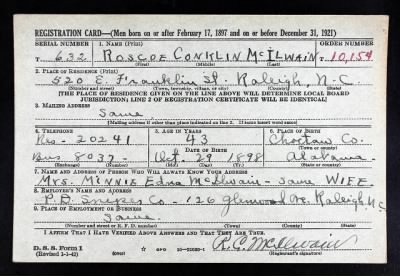 REGISTRATION CARD—(Men born on or after February 17, 1897 and on or before December 31, 1921)
SERIAL NUMBER 1. NAME (Print) ORDER NUMBER
T 632 ROSCOE CONKLIN McILWAIN T-10,154
2. PLACE OF RESIDENCE (Print)
520 E. Franklin St. Raleigh, N.C
(Number and street) (Town, township, village, or city) (County) (State)
[THE PLACE OF RESIDENCE GIVEN ON THE LINE ABOVE WILL DETERMINE LOCAL BOARD
JURISDICTION; LINE 2 OF REGISTRATION CERTIFICATE WILL BE IDENTICAL]
3. MAILING ADDRESS
Same
[Mailing address if other than place indicated on line 2. If same insert word same]
4. TELEPHONE 5. AGE IN YEARS 6. PLACE OF BIRTH
Res- 20241 43 Choctaw Co.
DATE OF BIRTH (Town or county)
Bus 8037- Oct. 29 1898 Alabama
(Exchange) (Number) (Mo.) (Day) (Yr.) (State or country)
7. NAME AND ADDRESS OF PERSON WHO WILL ALWAYS KNOW YOUR ADDRESS
Mrs. MINNIE Edna McIlwain - same WIFE
8. EMPLOYER'S NAME AND ADDRESS
P.D. Snipes Co - 126 Glenwood Ave. Raleigh NC
9. PLACE OF EMPLOYMENT OR BUSINESS
Same
(Number and street or R. F. D. number) (Town) (County) (State)
I AFFIRM THAT I HAVE VERIFIED ABOVE ANSWERS AND THAT THEY ARE TRUE.
D. S. S. Form 1 GPO R.C. McIlwain
(Revised 1-1-42) (over) (Registrant's signature)